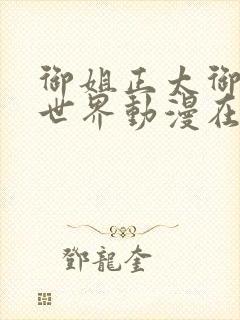 御姐正太御
世界動漫在
鄧龍奎